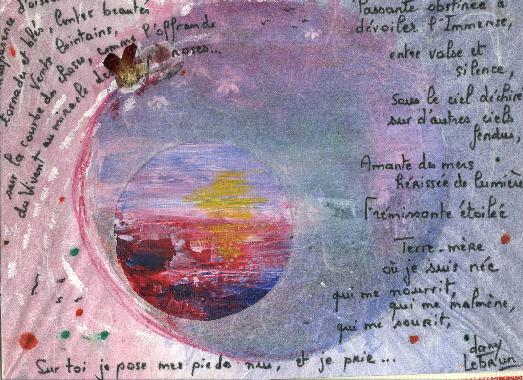 Passante obstinée à
dévoiler l'Immense,
entre valse et
silence,
sous le ciel déchiré
sur d'autres ciels
fendus,
Amante des mers
hérissée de lumière
Frémissante étoilée
Terre-mère
où je suis née
qui me nourrit,
qui me malmène,
qui me sourit,
Sur toi je pose mes pieds nus, et je prie...
dany
Lebrun
d'oise
limites beauté
bleu,
Verts lointains,
sur la courbe de l'offrande
du Vivant au miracle des roses...